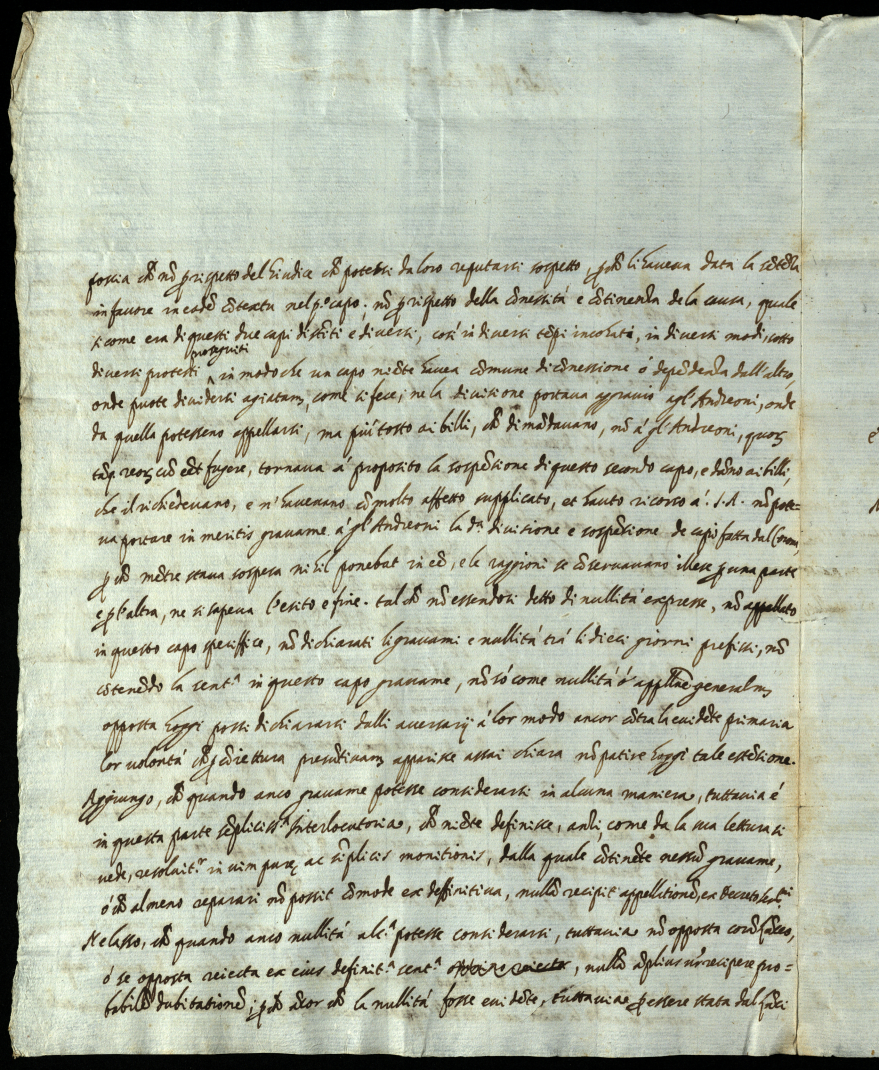 fossia chē nō p rispetto del Giudice chē potessi da loro reputarsi sospetto, p chē li haveva data la sētēza
in favore in eodē cōtextu nel p.º capo; nō p rispetto della cōnessità e cōtinenza de la causa, quale
si come era di questi due capi distīti e diversi, così in diversi tēpi incohata, in diversi modi, sotto
diversi protesti
proseguiti
in modo che un capo niēte havea cōmune di cōnessione ò depēdenza dall'altro,
onde puote dividersi agiatam., come si fece; ne la divisione portava aggravio agl'Andreoni, onde
da quella potesseno appellarsi, ma più tosto ai billi, chē dimādavano, nō à gl'Andreoni, quoȝ
tāq reoȝ cū eēt fugere, tornava à proposito la sospēsione di questo secondo capo, e dāno ai billi,
che il richiedevano, e n'havenano cō molto affetto supplicato, et hauto ricorso à .S.A. nō pote=
va portare in meritis gravame à gl'Andreoni la d.ª divisione e sospēsione de capi fatta dal
p chē mētre stava sospesa nihil ponebat in eē, e le raggioni se cōservavano illese p una parte
e p l'altra, ne si sapeva l'esito e fine. tal chē nō essendosi detto di nullità expresse, nō appellato
in questo capo speciffice, nō dichiarati li gravami e nullità trà li dieci giorni prefissi, nō
cōtenēdo la sent.ª in questo capo gravame, nō sò come nullità ò appllāe generalm.
opposta hoggi possi dichiararsi dalli aversarij à lor modo ancor cōtra la evidēte primaria
lor volontà chē p cōiettura presūtivam. apparisce assai chiara nō patire hoggi tale estēsione.
Aggiungo, chē quando anco gravame potesse considerarsi in alcuna maniera, tuttavia é
in questa parte sēpliciss.ª Interlocutoria, chē niēte definisce, anzi, come da la sua lettura si
vede, resolvit.r in vim purę ac sīplicis monitionis, dalla quale cōtinēte nessū gravame,
ò chē almeno reparari nō possit cōmode ex deffinitiva, nullā recipit appellationē, ex decreto
Relasso, chē quando anco nullità alc.ª potesse considerarsi, tuttavia nō opposta corā
ò se opposta reiecta ex eius definit.ª sent.ª, nullā āplius recipere pro=
babilē dubitationē; p chē ācor chē la nullità fosse evidēte, tuttavia p essere stata dal